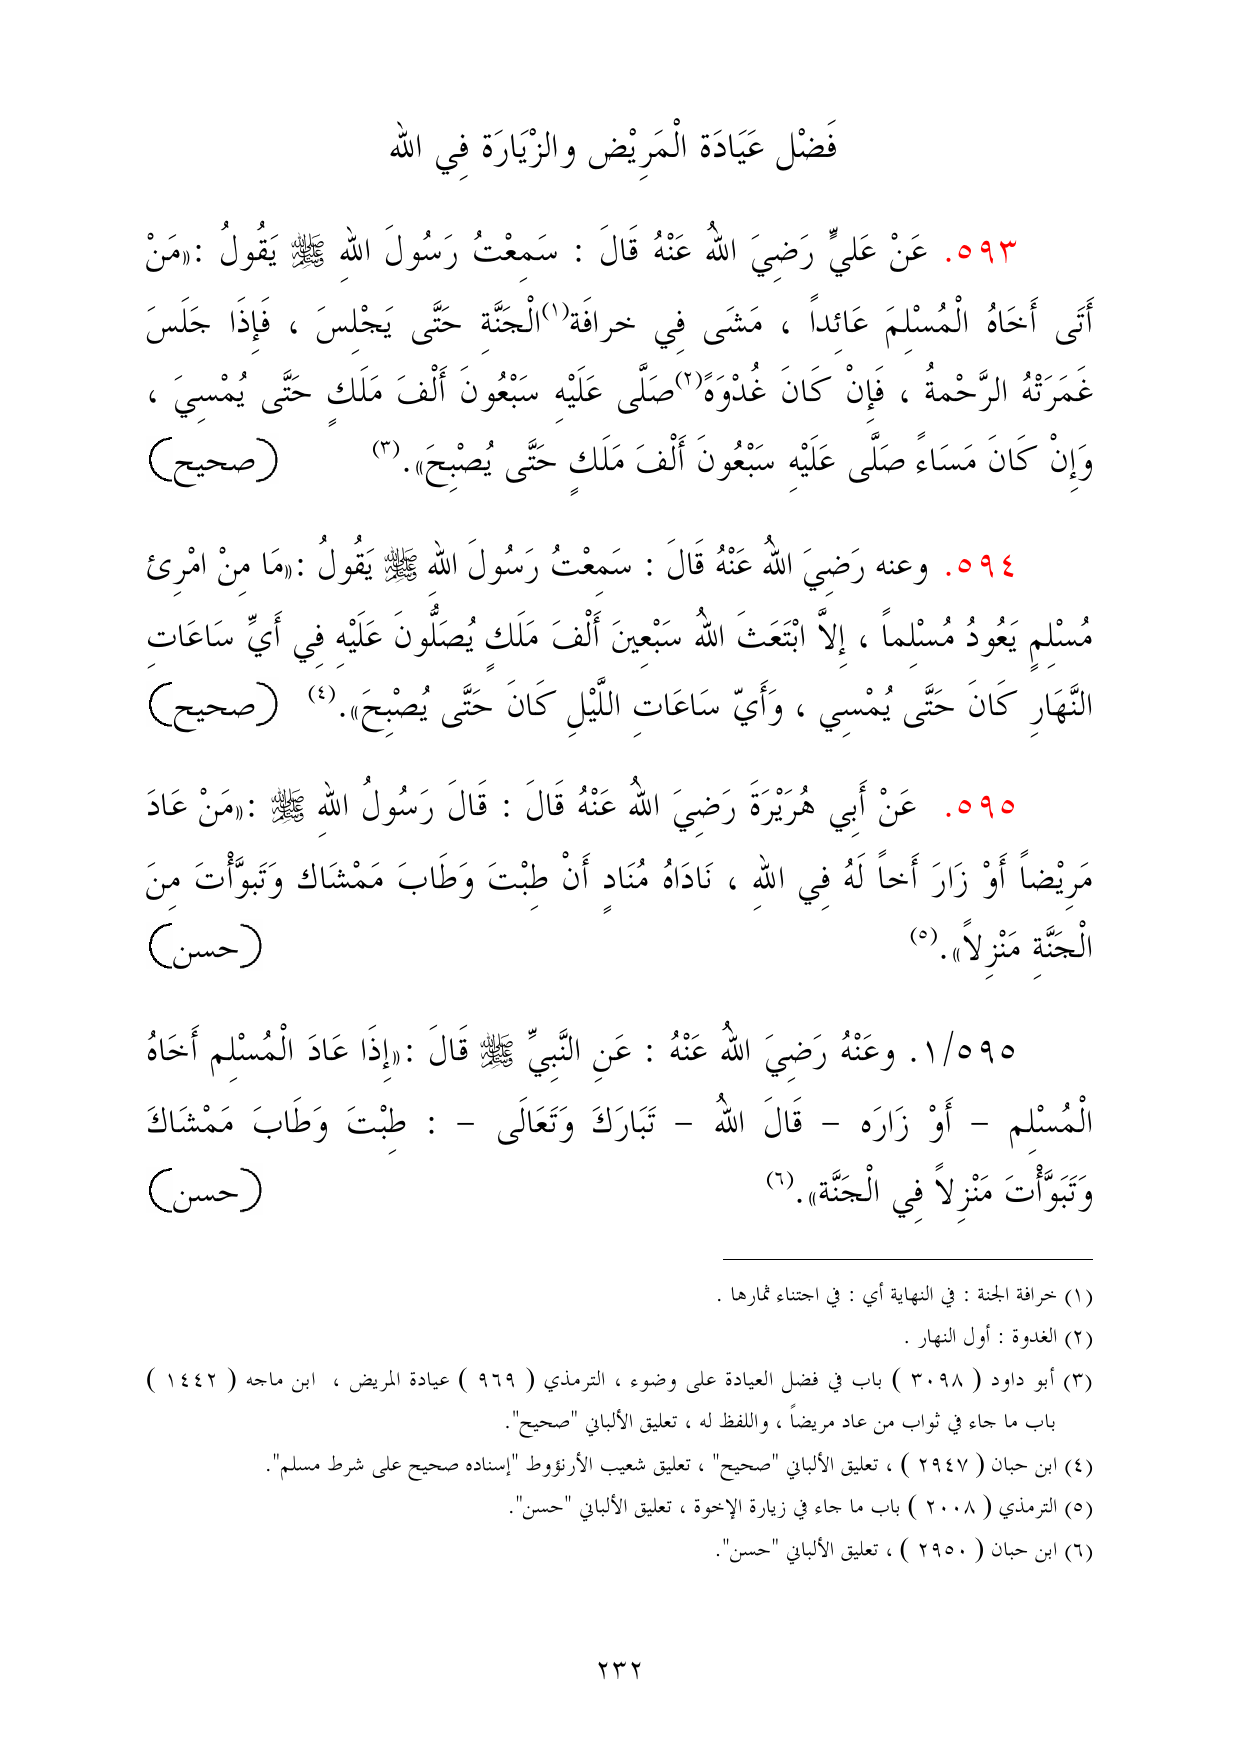 فَضْل عَيَادَة الْمَرِيْض والزْيَارَة فِي الله
٥٩٣. عَنْ عَليٍّ رَضِيَ اللهُ عَنْهُ قَالَ : سَمِعْتُ رَسُولَ اللهِ ﷺ يَقُولُ :«مَنْ
أَتَى أَخَاهُ الْمُسْلِمَ عَائِداً ، مَشَى فِي خرافَة(١)الْجَنَّةِ حَتَّى يَجْلِسَ ، فَإِذَا جَلَسَ
غَمَرَتْهُ الرَّحْمةُ ، فَإِنْ كَانَ غُدْوَةً(٢)صَلَّى عَلَيْهِ سَبْعُونَ أَلْفَ مَلَكٍ حَتَّى يُمْسِيَ ،
وَإِنْ كَانَ مَسَاءً صَلَّى عَلَيْهِ سَبْعُونَ أَلْفَ مَلَكٍ حَتَّى يُصْبِحَ».(٣) (صحيح)
٥٩٤. وعنه رَضِيَ اللهُ عَنْهُ قَالَ : سَمِعْتُ رَسُولَ اللهِ ﷺ يَقُولُ :«مَا مِنْ امْرِئ
مُسْلِمٍ يَعُودُ مُسْلِماً ، إِلاَّ ابْتَعَثَ اللهُ سَبْعِينَ أَلْفَ مَلَكٍ يُصَلُّونَ عَلَيْهِ فِي أَيِّ سَاعَاتِ
النَّهَارِ كَانَ حَتَّى يُمْسِي ، وَأَيّ سَاعَاتِ اللَّيْلِ كَانَ حَتَّى يُصْبِحَ».(٤) (صحيح)
٥٩٥. عَنْ أَبِي هُرَيْرَةَ رَضِيَ اللهُ عَنْهُ قَالَ : قَالَ رَسُولُ اللهِ ﷺ :«مَنْ عَادَ
مَرِيْضاً أَوْ زَارَ أَخاً لَهُ فِي اللهِ ، نَادَاهُ مُنَادٍ أَنْ طِبْتَ وَطَابَ مَمْشَاك وَتَبوَّأْتَ مِنَ
الْجَنَّةِ مَنْزِلاً».(٥) (حسن)
١/٥٩٥. وعَنْهُ رَضِيَ اللهُ عَنْهُ : عَنِ النَّبِيِّ ﷺ قَالَ :«إِذَا عَادَ الْمُسْلِم أَخَاهُ
الْمُسْلِم – أَوْ زَارَه – قَالَ اللهُ – تَبَارَكَ وَتَعَالَى – : طِبْتَ وَطَابَ مَمْشَاكَ
وَتَبَوَّأْتَ مَنْزِلاً فِي الْجَنَّة».(٦) (حسن)
(١) خرافة الجنة : في النهاية أي : في اجتناء ثمارها .
(٢) الغدوة : أول النهار .
(٣) أبو داود ( ٣٠٩٨ ) باب في فضل العيادة على وضوء ، الترمذي ( ٩٦٩ ) عيادة المريض ، ابن ماجه ( ١٤٤٢ )
باب ما جاء في ثواب من عاد مريضاً ، واللفظ له ، تعليق الألباني "صحيح".
(٤) ابن حبان ( ٢٩٤٧ ) ، تعليق الألباني "صحيح" ، تعليق شعيب الأرنؤوط "إسناده صحيح على شرط مسلم".
(٥) الترمذي ( ٢٠٠٨ ) باب ما جاء في زيارة الإخوة ، تعليق الألباني "حسن".
(٦) ابن حبان ( ٢٩٥٠ ) ، تعليق الألباني "حسن".
٢٣٢